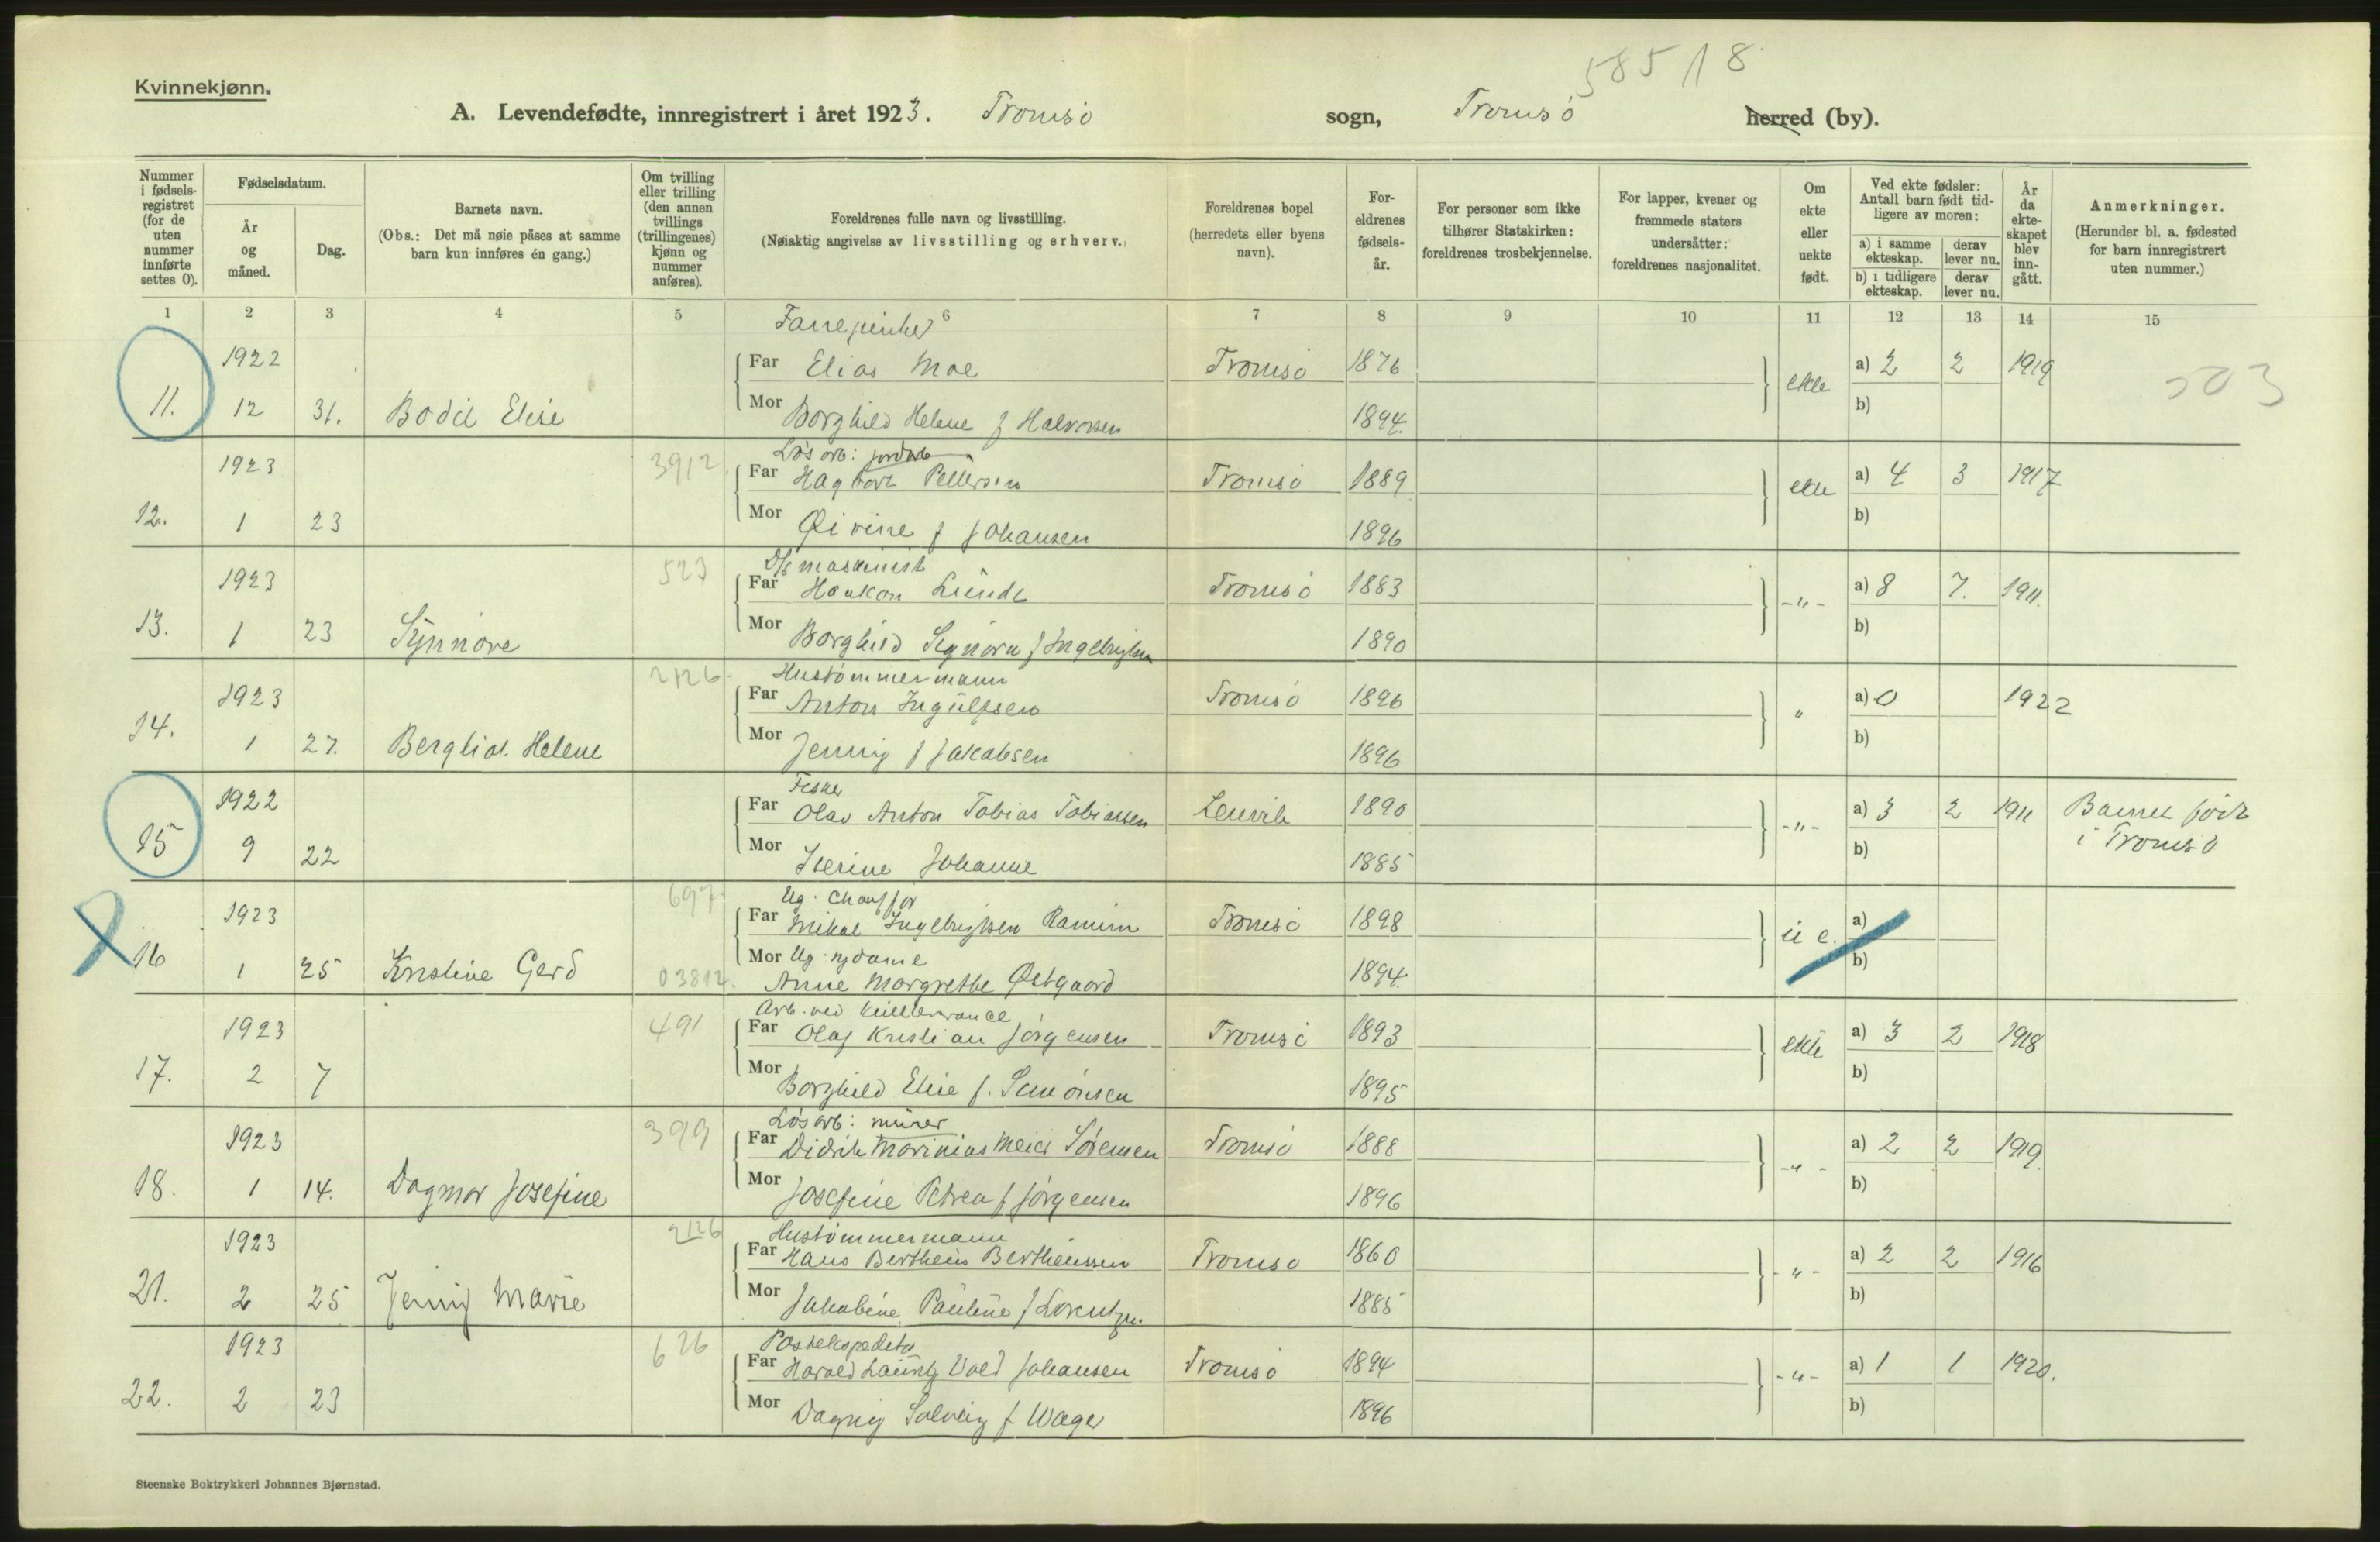 585 18
Kvinnekjønn.
A. Levendefødte, innregistrert i året 1923. Tromsö sogn, Tromsö herred (by).
Nummer i fødsels-registret (for de uten nummer innførte settes 0).
Fødselsdatum.
År og måned.
Dag.
Barnets navn.
(Obs.: Det må nøie påses at samme barn kun innføres én gang.)
Om tvilling eller trilling (den annen tvillings (trillingenes) kjønn og nummer anføres).
Foreldrenes fulle navn og livsstilling.
(Nøiaktig angivelse av livsstilling og erhverv.)
Foreldrenes bopel (herredets eller byens navn).
For-eldrenes fødsels-år.
For personer som ikke tilhører Statskirken: foreldrenes trosbekjennelse.
For lapper, kvener og fremmede staters undersåtter: foreldrenes nasjonalitet.
Om ekte eller uekte født.
Ved ekte fødsler: Antall barn født tid-ligere av moren:
a) i samme ekteskap.
derav lever nu.
b) i tidligere ekteskap.
derav lever nu.
År da ekte-skapet blev inn-gått.
Anmerkninger.
(Herunder bl. a. fødested for barn innregistrert uten nummer.)
1 2 3 4 5 6 7 8 9 10 11 12 13 14 15
1922
Far Elias Moe Tromsö 1876 ekte a) 2 2 1919
503
11. 12 31. Bodil Elise
Mor Borghild Helene f Halvorsen 1894. b)
1923 3912
Løsarb: jordarb
Far Hagbart Pettersen Tromsö 1889 ekte a) 4 3 1917
12. 1 23
Mor f Johansen 1896 b)
1923 523
maskinist
Far Haakon Lunde Tromsö 1883 -"- a) 8 7. 1911.
13. 1 23 Synnöve
Mor Borghild Signora f Ingebrigtsen 1890 b)
1923 2126
Hustömmermann
Far Anton Ingulfsen Tromsö 1896 " a) 0 1922
14. 1 27. Bergliot Helene
Mor Jenny f Jakobsen 1896 b)
1922
Fisker
Far Olav Anton Tobias Tobiassen Lenvik 1890 -"- a) 3 2 1911 Barnet född i Tromsö
15 9 22
Mor Johanne 1885 b)
1923 697
Ug. Chauffør
Far Mikal Ingebrigtsen Tromsö 1898 u e. a)
16 1 25 Kristine Gerd
Mor Ug. sydame
03812. Anne Margrethe Östgaard 1894. b)
1923 491
Arb. ved
Far Olaf Kristian Jörgensen Tromsö 1893 ekte a) 3 2 1918
17. 2 7
Mor Borghild Elise f. Simonsen 1895 b)
1923 399
Løsarb: murer
Far Didrik Marinius Meier Sörensen Tromsö 1888 -"- a) 2 2 1919
18. 1 14. Dagmar Josefine
Mor Josefine Petrea f Jörgensen 1896 b)
1923 2126
Hustömmermann
Far Hans Bertheus Bertheussen Tromsö 1860 -"- a) 2 2 1916
21. 2 25 Jenny Marie
Mor Jakobine Pauline f Lorentzen 1885 b)
1923 626
Postekspeditør
Far Harald Lauritz Vold Johansen Tromsö 1894 -"- a) 1 1 1920.
22. 2 23
Mor Dagny Solveig f Wæger 1896 b)
Steenske Boktrykkeri Johannes Bjørnstad.